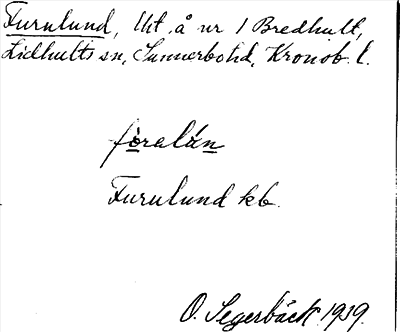 Furulund, lht. å nr 1 Bredhult,
Lidhults sn, Sunnerbo hd, Kronob. l.
fòralún
Furulund kb.
O. Segerbäck 1939.